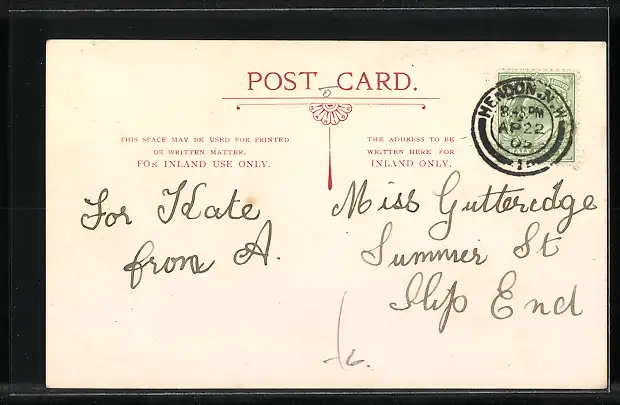 POST CARD.
THIS SPACE MAY BE USED FOR PRINTED
OR WRITTEN MATTER.
FOR INLAND USE ONLY.
THE ADDRESS TO BE
WRITTEN HERE FOR
INLAND ONLY.
HENDON. N.W.
8.45 PM
AP 22
05
For Kate
from A.
Miss Gutteredge
Summer St
Slip End